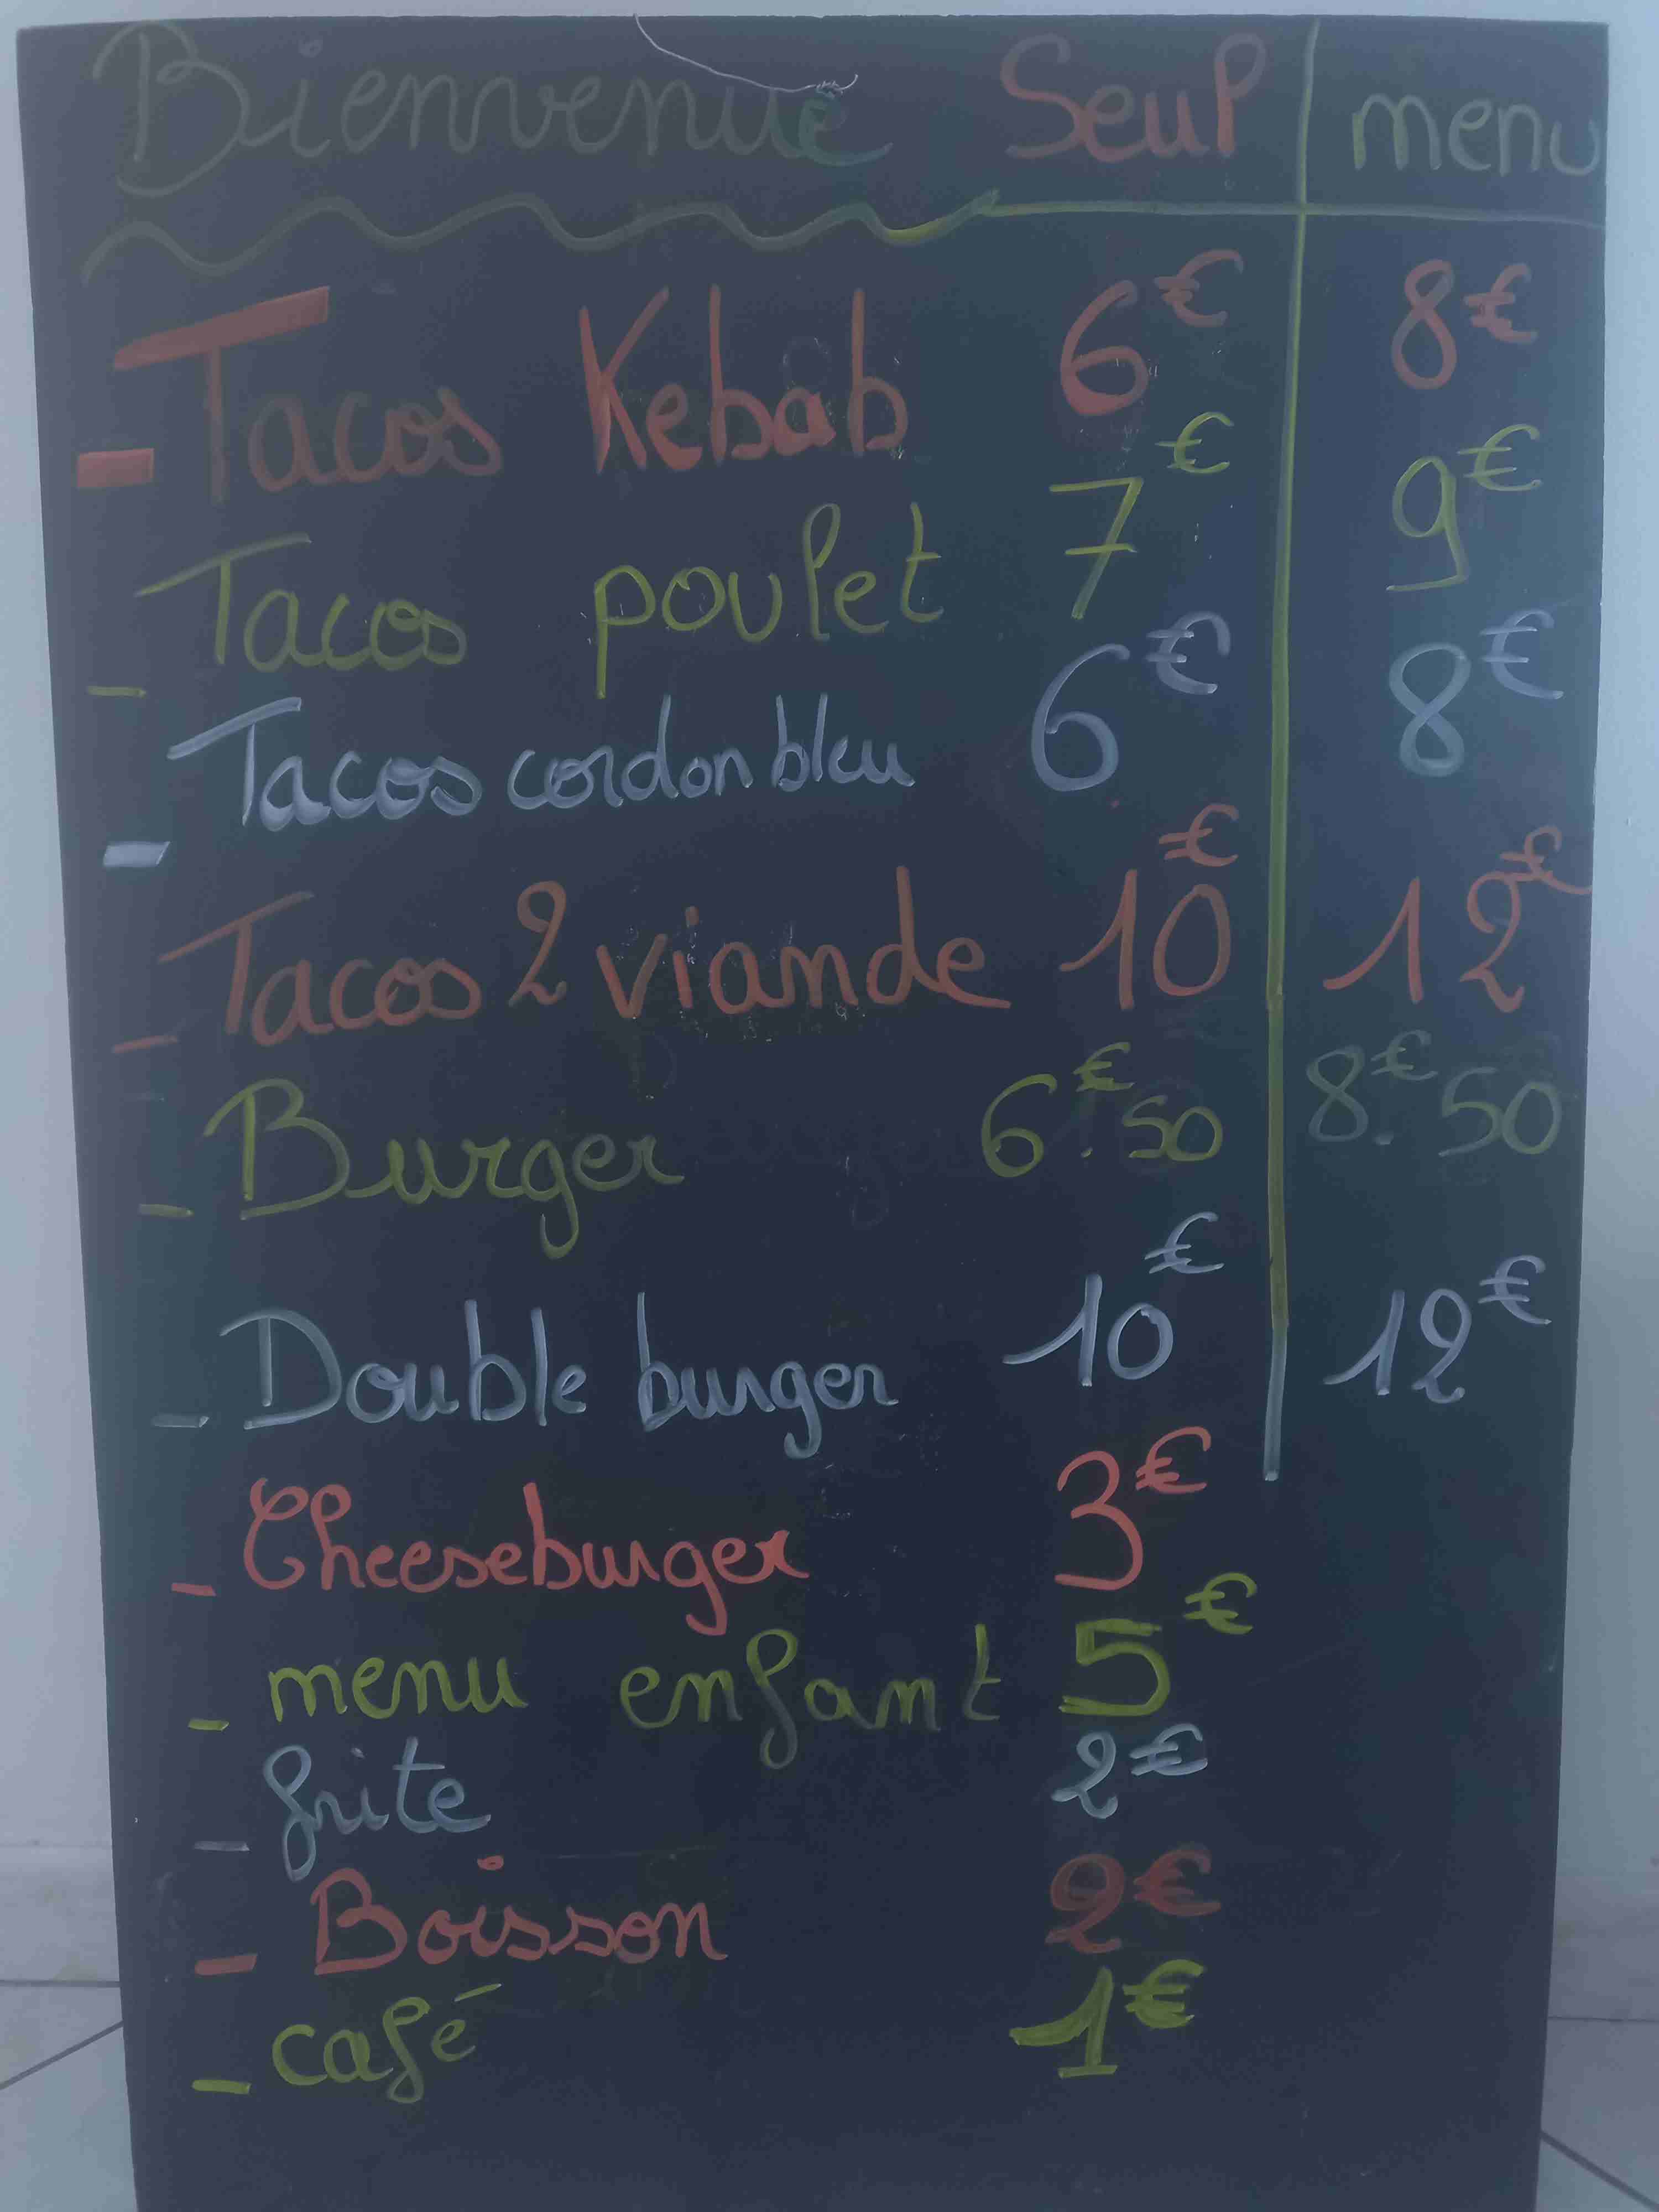 Bienvenue Seul menu
- Tacos Kebab 6€ 8€
- Tacos poulet 7€ 9€
- Tacos cordon bleu 6€ 8€
- Tacos 2 viande 10€ 12€
- Burger 6€.50 8€.50
- Double burger 10€ 12€
- Cheeseburger 3€
- menu enfant 5€
- frite 2€
- Boisson 2€
- café 1€